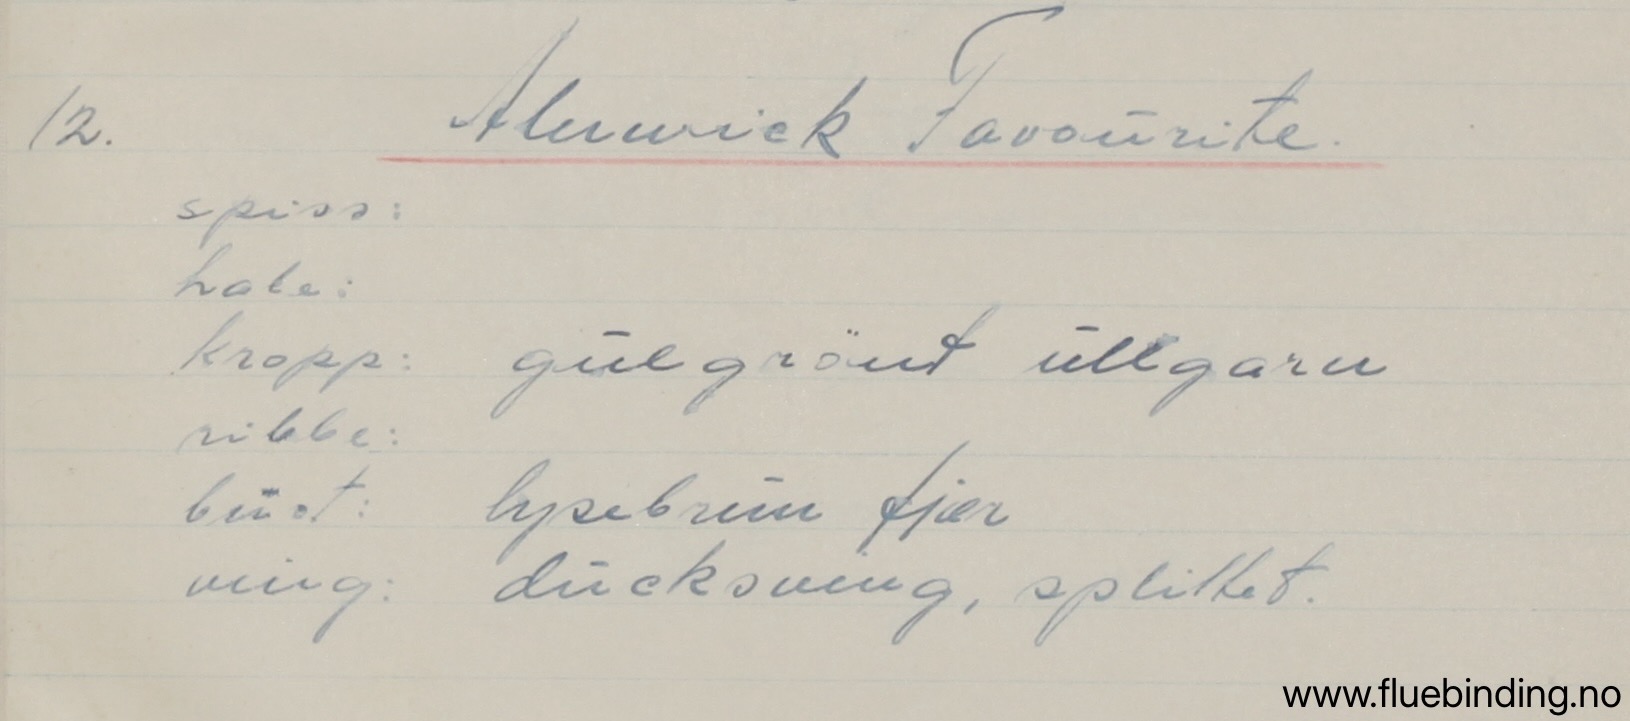 12. Alnwick Favourite.
spiss:
hale:
kropp: gulgrönt ullgarn
ribbe:
bust: lysebrun fjær
ving: ducksving, splittet.
www.fluebinding.no